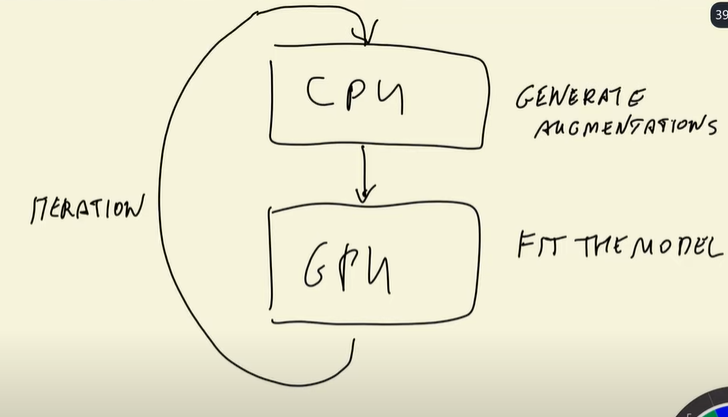 39
CPU
GENERATE
AUGMENTATIONS
ITERATION
GPU
FIT THE MODEL